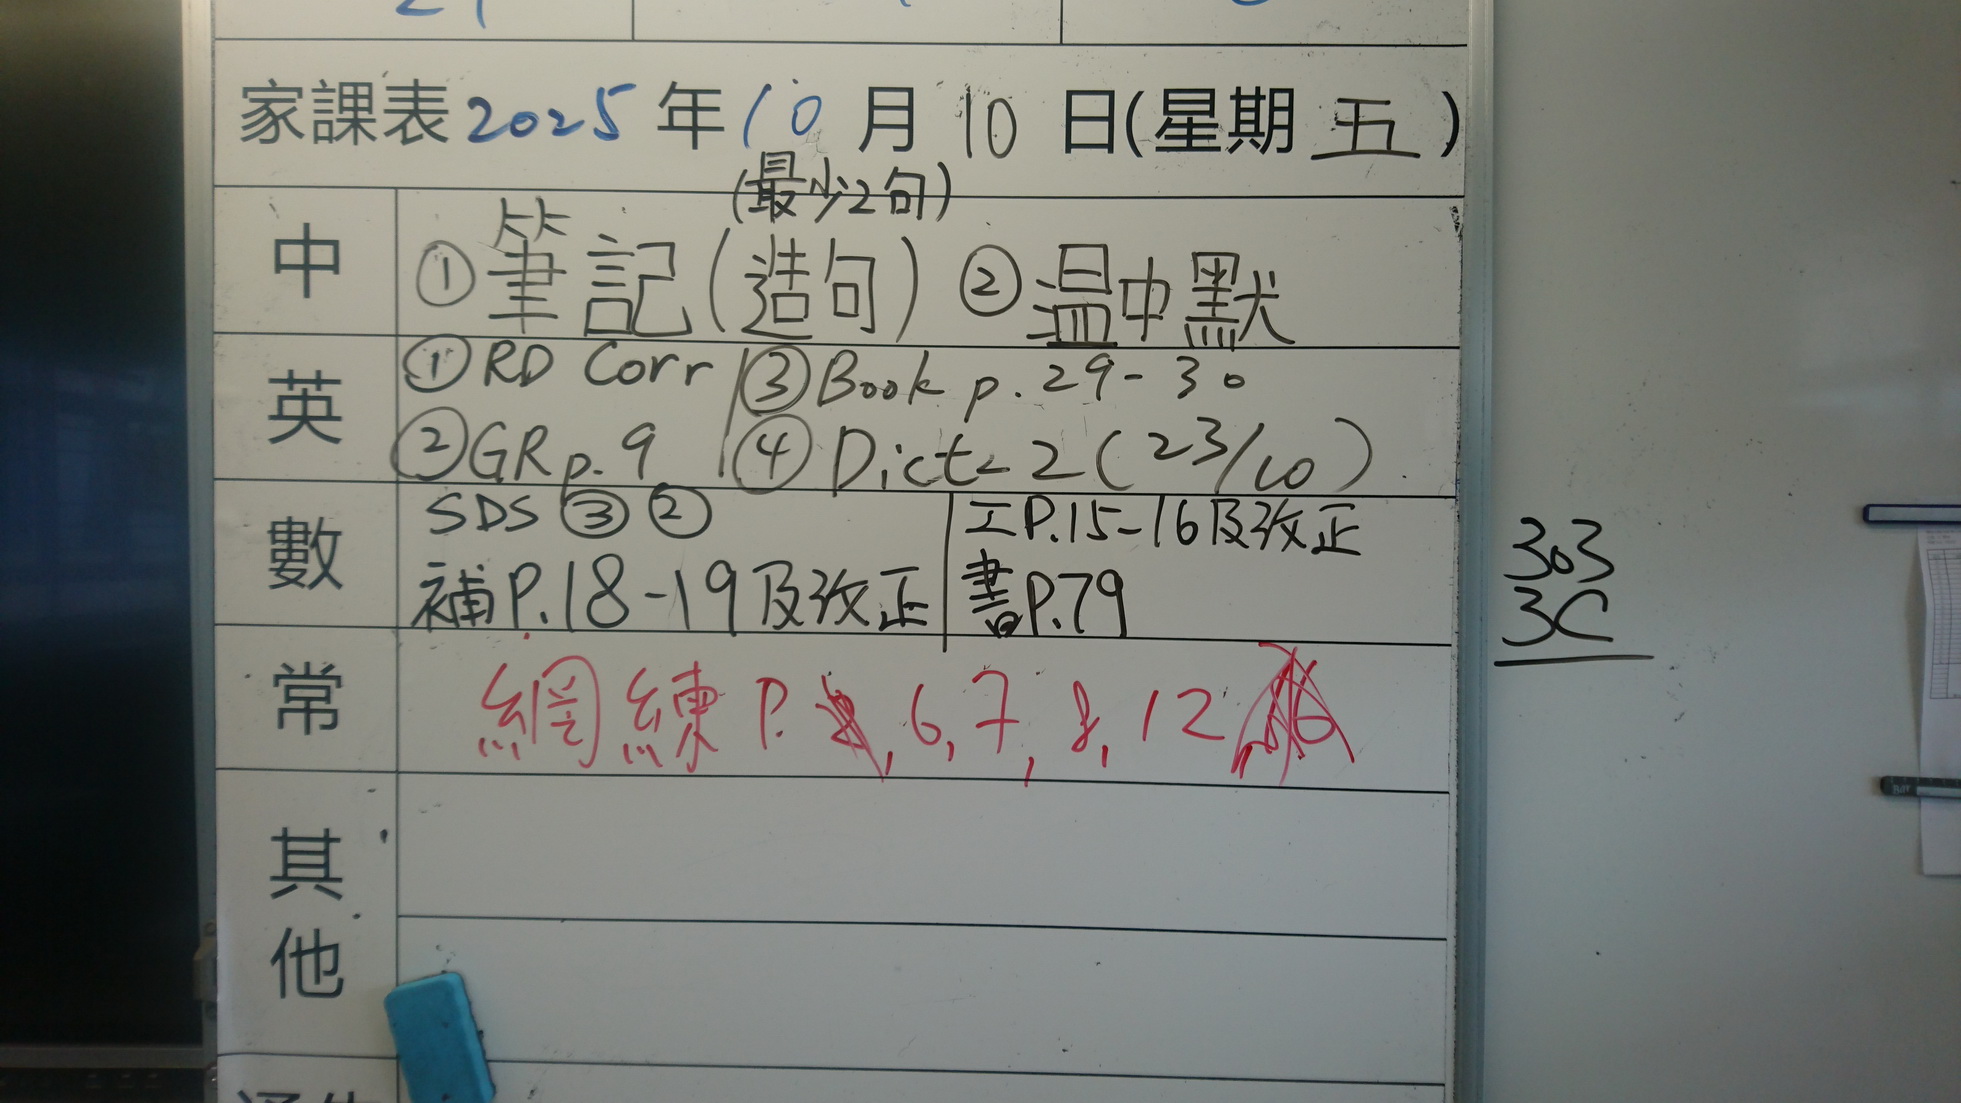 家課表 2025 年 10 月 10 日(星期 五 )
(最少2句)
中 ①筆記(造句) ②温中默
英 ①RD Corr ③Book p. 29-30
②GR p. 9 ④Dict 2 (23/10)
數 SDS ③ ② 工P.15-16及改正
補P.18-19及改正 書P.79
303
3C
常 網練 P. , 6, 7, 8, 12
其他